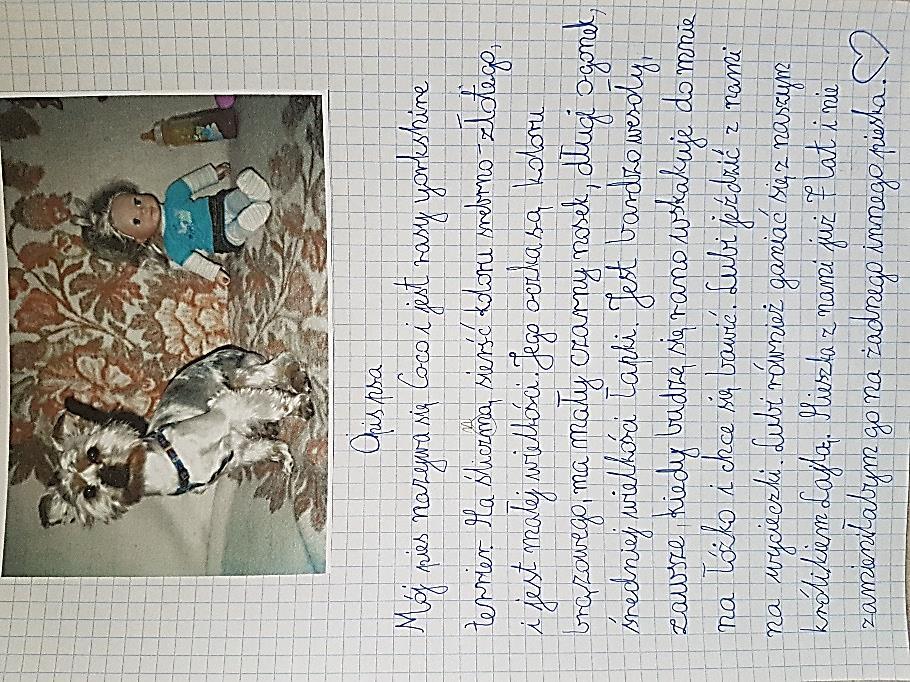 Opis psa
Mój pies nazywa się Coco i jest rasy yorkshire
terrier. Ma śliczną, sierść koloru srebrno-złotego,
i jest małej wielkości. Jego oczka są koloru
brązowego, ma mały czarny nosek, długi ogonek,
średniej wielkości łapki. Jest bardzo wesoły,
zawsze, kiedy budzę się rano wskakuje do mnie
na łóżko i chce się bawić. Lubi jeździć z nami
na wycieczki. Lubi również ganiać się z naszym
królikiem Lajlą. Mieszka z nami już 7 lat i nie
zamieniłabym go na żadnego innego pieska.